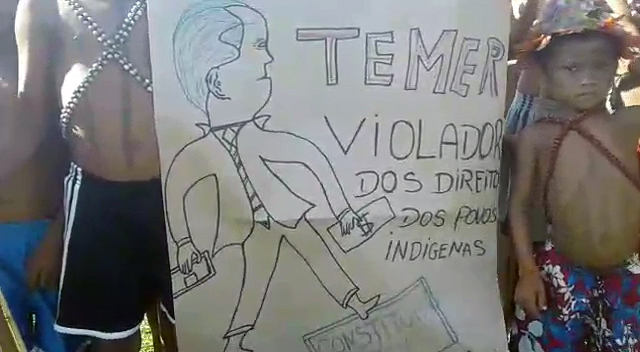 TEMER
VIOLADOR
DOS DIREITO
DOS POVOS
INDÍGENAS
$
CONSTITUI